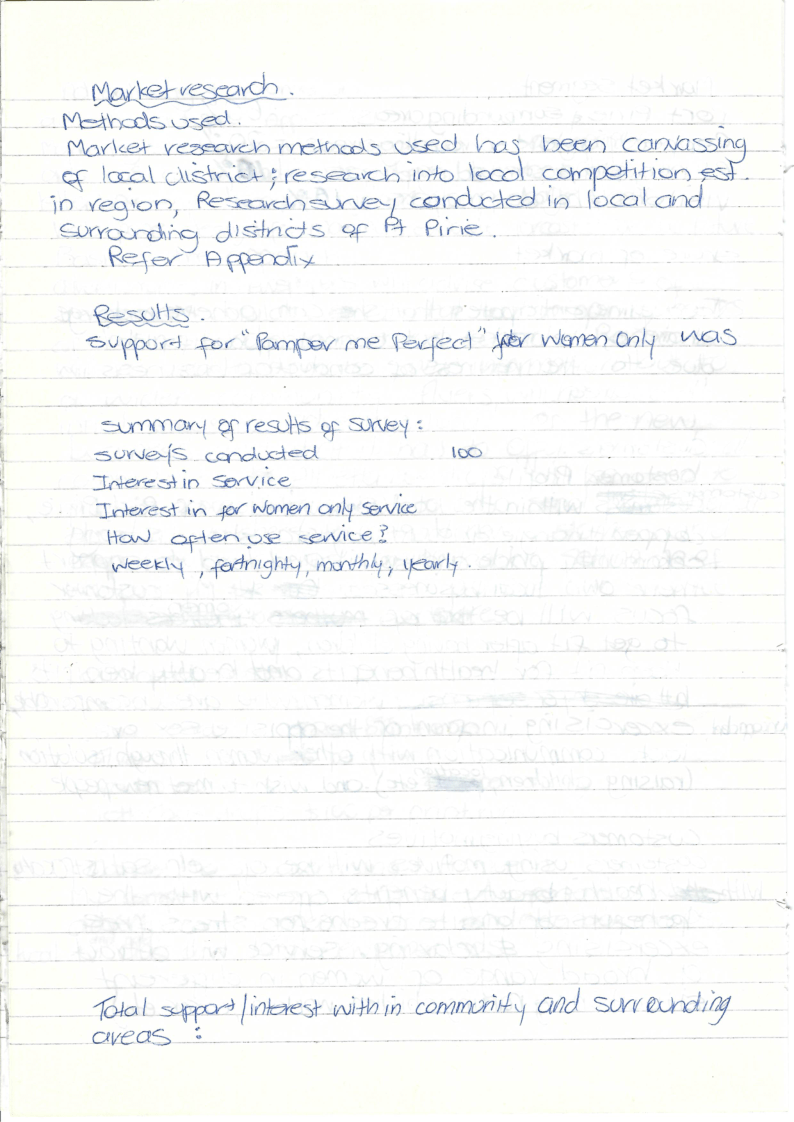 Market research.
Methods used.
Market research methods used has been canvassing
of local district; research into local competition est.
in region, Research survey conducted in local and
surrounding districts of Pt Pirie.
Refer Appendix
Results.
support for "Pamper me Perfect" for Women Only was
summary of results of survey:
survey/s conducted 100
Interest in service
Interest in for Women only service
How often use service?
weekly, fortnighty, monthly, yearly.
Total support/interest with in community and surrounding
areas :